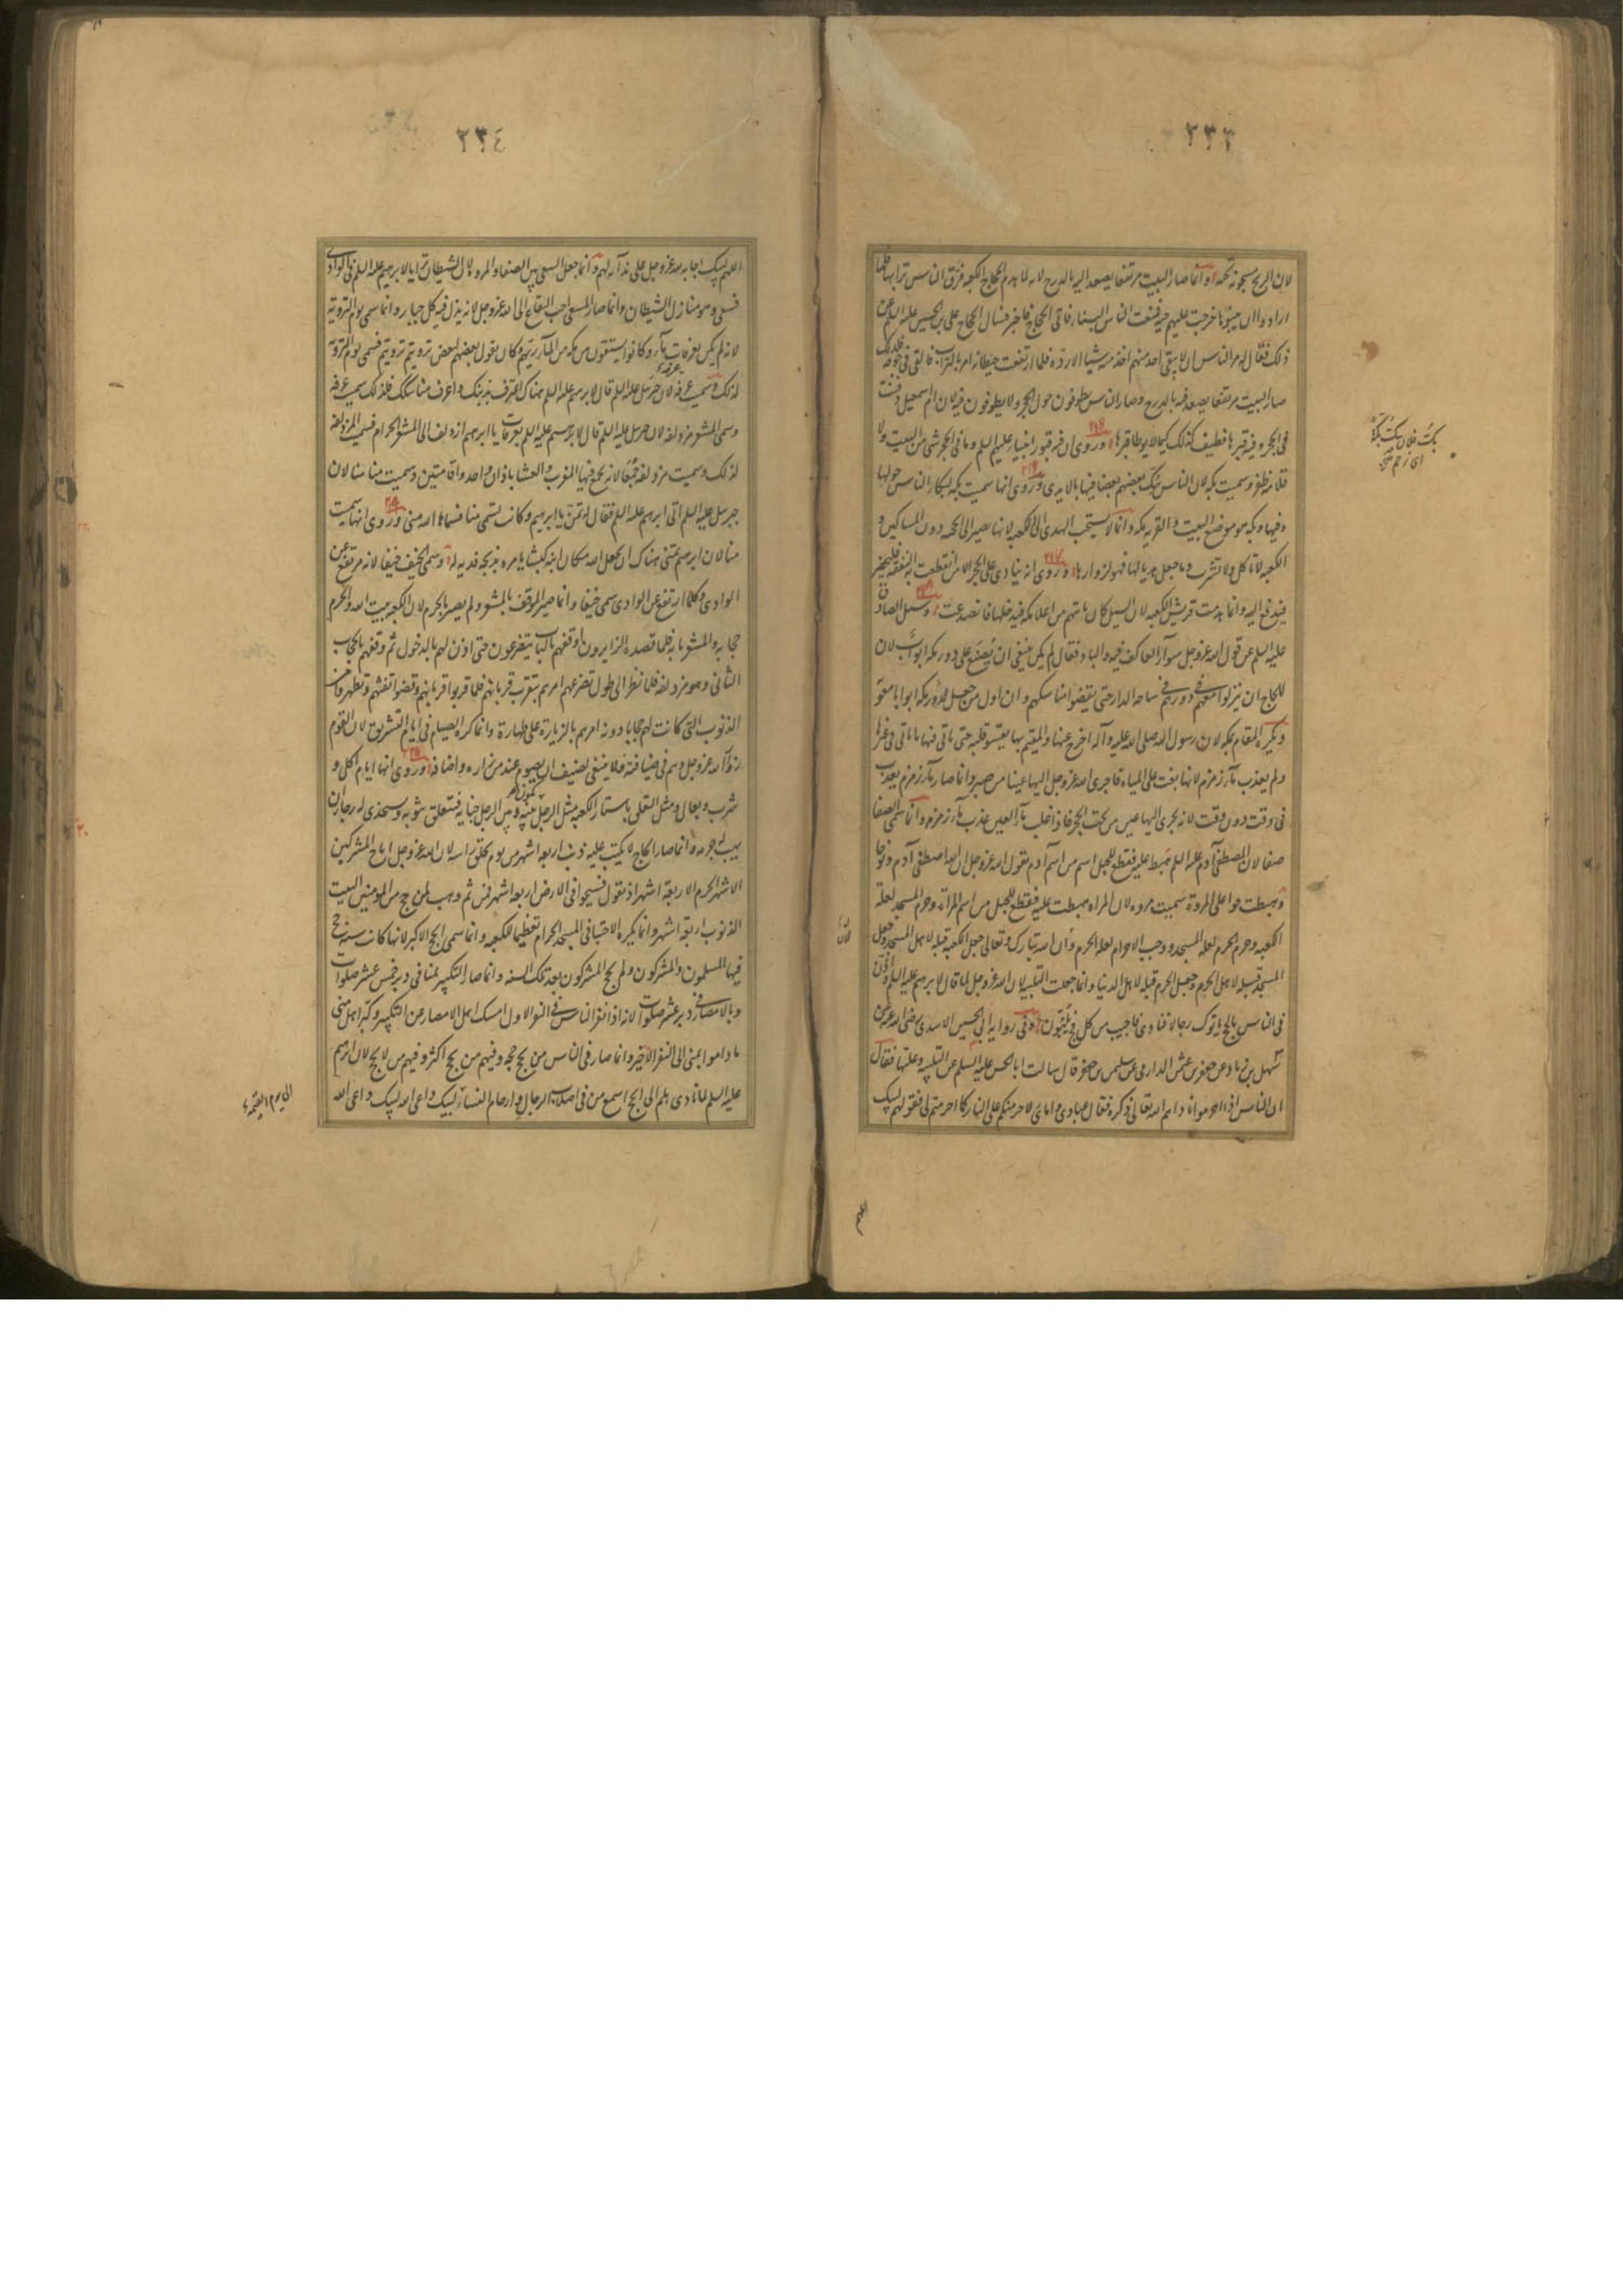 ٢٣٣
لان الريح مسجونة تحته وانما صار البيت مرتفعا يصعد اليه بالدرج لانه لما هدم الحجاج الكعبة فرق الناس ترابها فلما
ارادوا ان يبنوها خرجت عليهم حية فمنعت الناس البناء فاتى الحجاج فاخبر فسال الحجاج على بن الحسين عليه السلم عن
ذلك فقال له مر الناس ان لا يبقى احد منهم اخذ منه شيئا الا رده فلما ارتفعت حيطانه امر بالتراب فالقى فى جوفه فلذلك
صار البيت مرتفعا يصعد فيه بالدرج وصار الناس يطوفون حول الحجر ولا يطوفون فيه لان ام اسمعيل دفنت
فى الحجر وفيه قبرها فطيف كذلك كيما لا يوطا قبرها وروى ان فيه قبور انبياء عليهم السلم وما فى الحجر شى من البيت ولا
قلامة ظفر وسميت بكه لان الناس يبك بعضهم بعضا فيها بالايدى وروى انها سميت بكه لبكاء الناس حولها
وفيها وبكه هو موضع البيت والقريه مكه وانما لا يستحب الهدى الى الكعبه لانه يصير الى الحجبه دون المساكين و
الكعبه لا تاكل ولا تشرب وما جعل هديا لها فهو لزوارها وروى انه ينادى على الحجر الا من انقطعت به النفقه فليحضر
فيدفع اليه وانما هدمت قريش الكعبه لان السيل كان ياتيهم من اعلا مكه فيدخلها فانصدعت وسئل الصادق
عليه السلم عن قول الله عز وجل سواء العاكف فيه والباد فقال لم يكن ينبغى ان يصنع على دور مكه ابواب لان
للحاج ان ينزلوا معهم فى دورهم فى ساحه الدار حتى يقضوا مناسكهم وان اول من جعل لدور مكه ابوابا معويه
ويكره المقام بمكه لان رسول الله صلى الله عليه وآله اخرج عنها والمقيم بها يقسو قلبه حتى ياتى فيها ما ياتى فى غيرها
ولم يعذب ماء زمزم لانها بغت على المياه فاجرى الله عز وجل اليها عينا من صبر وانما صار ماء زمزم يعذب
فى وقت دون وقت لانه يجرى اليها عين من تحت الحجر فاذا غلب ماء العين عذب ماء زمزم وانما سمى الصفا
صفا لان المصطفى آدم عليه السلم هبط عليه فقطع للجبل اسم من اسم آدم بقول الله عز وجل ان الله اصطفى آدم ونوحا
وهبطت حوا على المروة فسميت مروه لان المراه هبطت عليه فقطع للجبل من اسم المراة وحرم المسجد لعلة
الكعبه وحرم الحرم لعلة المسجد ووجب الاحرام لعلة الحرم وان الله تبارك وتعالى جعل الكعبة قبلة لاهل المسجد وجعل
المسجد قبلة لاهل الحرم وجعل الحرم قبلة لاهل الدنيا وانما جعلت التلبيه لان الله عز وجل لما قال لابرهيم عليه السلم واذن
فى الناس بالحج ياتوك رجالا فنادى فاجيب من كل فج يلبون وفى روايه ابى الحسين الاسدى رضى الله عنه عن
سهل بن زياد عن جعفر بن عثمن الدارمى عن سليمن بن جعفر قال سالت ابا الحسن عليه السلم عن التلبيه وعلتها فقال
ان الناس اذا احرموا ناداهم الله تعالى ذكره فقال عبادى وامائى لاحرمنكم على النار كما احرمتم لى فقولهم لبيك
اللهم
٢٣٤
اللهم لبيك اجابه لله عز وجل على ندائه لهم وانما جعل السعى بين الصفا والمروه لان الشيطان ترايا لابرهيم عليه السلم فى الوادى
فسعى وهو منازل الشيطان وانما صار المسعى احب البقاع الى الله عز وجل لانه يذل فيه كل جبار وانما سمى يوم الترويه
لانه لم يكن بعرفات ماء وكانوا يستقون من مكه من الماء ريهم وكان يقول بعضهم لبعض ترويتم ترويتم فسمى يوم الترويه
لذلك وسميت عرفه عرفه لان جبرئيل عليه السلم قال لابرهيم عليه السلم هناك اعترف بذنبك واعرف مناسكك فلذلك سميت عرفه
وسمى المشعر مزدلفه لان جبرئيل عليه السلم قال لابرهيم عليه السلم بعرفات يا ابرهيم ازدلف الى المشعر الحرام فسميت المزدلفه
لذلك وسميت مزدلفه جمعا لانه يجمع فيها المغرب والعشا باذان واحد واقامتين وسميت منا منا لان
جبرئيل عليه السلم اتى ابرهيم عليه السلم فقال له تمن يا ابرهيم وكانت تسمى منا فسماها الله منى وروى انها سميت
منا لان ابرهيم تمنى هناك ان يجعل الله مكان ابنه كبشا يامره بذبحه فديه له وسمى الخيف خيفا لانه مرتفع عن
الوادى وكلما ارتفع عن الوادى سمى خيفا وانما صير الموقف بالمشعر ولم يصر بالحرم لان الكعبه بيت الله والحرم
حجابه والمشعر بابه فلما قصده الزايرون اوقفهم بالباب يتضرعون حتى اذن لهم بالدخول ثم وقفهم بالحجاب
الثانى وهو مزدلفه فلما نظر الى طول تضرعهم امرهم بتقرب قربانهم فلما قربوا قربانهم وقضوا تفثهم وتطهروا من
الذنوب التى كانت لهم حجابا دونه امرهم بالزيارة على طهارة وانما كره الصيام فى ايام التشريق لان القوم
زوار الله عز وجل وهم فى ضيافته فلا ينبغى لضيف ان يصوم عند من زاره واضافه وروى انها ايام اكل و
شرب وبعال ومثل التعلق باستار الكعبه مثل الرجل يكون بينه وبين الرجل جنايه فيتعلق بثوبه ويستخذى له رجاء ان
يهب له جرمه وانما صار الحاج لا يكتب عليه ذنب اربعة اشهر من يوم يحلق راسه لان الله عز وجل اباح المشركين
الاشهر الحرم الاربعة اشهر اذ يقول فسيحوا فى الارض اربعة اشهر فمن ثم وهب لمن حج من المومنين البيت
الذنوب اربعة اشهر وانما يكره الاحتبا فى المسجد الحرام تعظيما للكعبه وانما سمى الحج الاكبر لانها كانت سنه حج
فيها المسلمون والمشركون ولم يحج المشركون بعد تلك السنه وانما صار التكبير بمنا فى دبر خمس عشر صلوات
وبالامصار فى دبر عشر صلوات لانه اذا نفر الناس فى النفر الاول امسك اهل الامصار عن التكبير وكبر اهل منى
ما داموا بمنى الى النفر الاخير وانما صار فى الناس من يحج حجه وفيهم من يحج اكثر وفيهم من لا يحج لان ابرهيم
عليه السلم لما نادى هلم الى الحج اسمع من فى اصلاب الرجال وارحام النساء لبيك داعى الله لبيك داعى الله